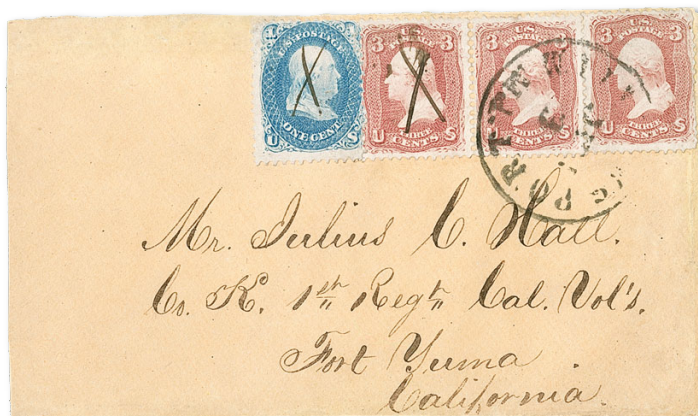 U.S. POSTAGE
ONE CENT
U S
3 U.S. POSTAGE 3
U THREE CENTS S
3 U.S. POSTAGE 3
U THREE CENTS S
3 U.S. POSTAGE 3
U THREE CENTS S
PORT
Mr. Julius C. Hall.
Co. K. 1st Regt Cal. Vol's.
Fort Yuma
California.